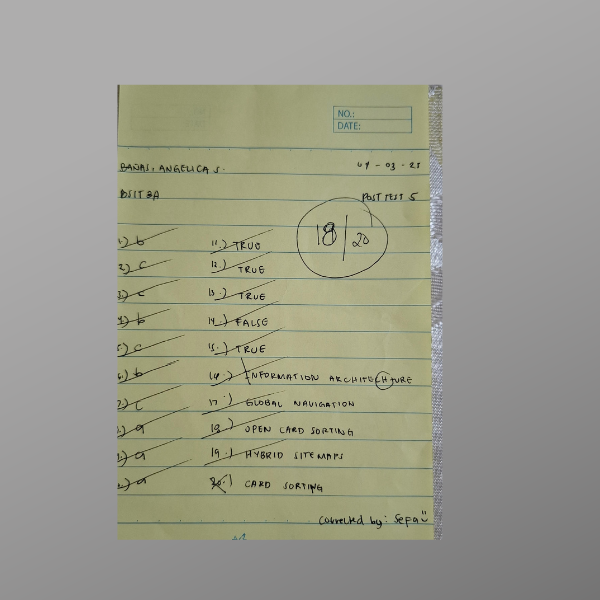 NO.:
DATE:
BAÑAS, ANGELICA S. 04-03-25
BSIT 3A POST TEST 5
18/20
1.) b 11.) TRUE
2.) c 12.) TRUE
3.) c 13.) TRUE
4.) b 14.) FALSE
5.) c 15.) TRUE
6.) b 16.) INFORMATION ARCHITECHTURE
7.) c 17.) GLOBAL NAVIGATION
8.) a 18.) OPEN CARD SORTING
9.) a 19.) HYBRID SITEMAPS
10.) a 20.) CARD SORTING
Corrected by: Sefa